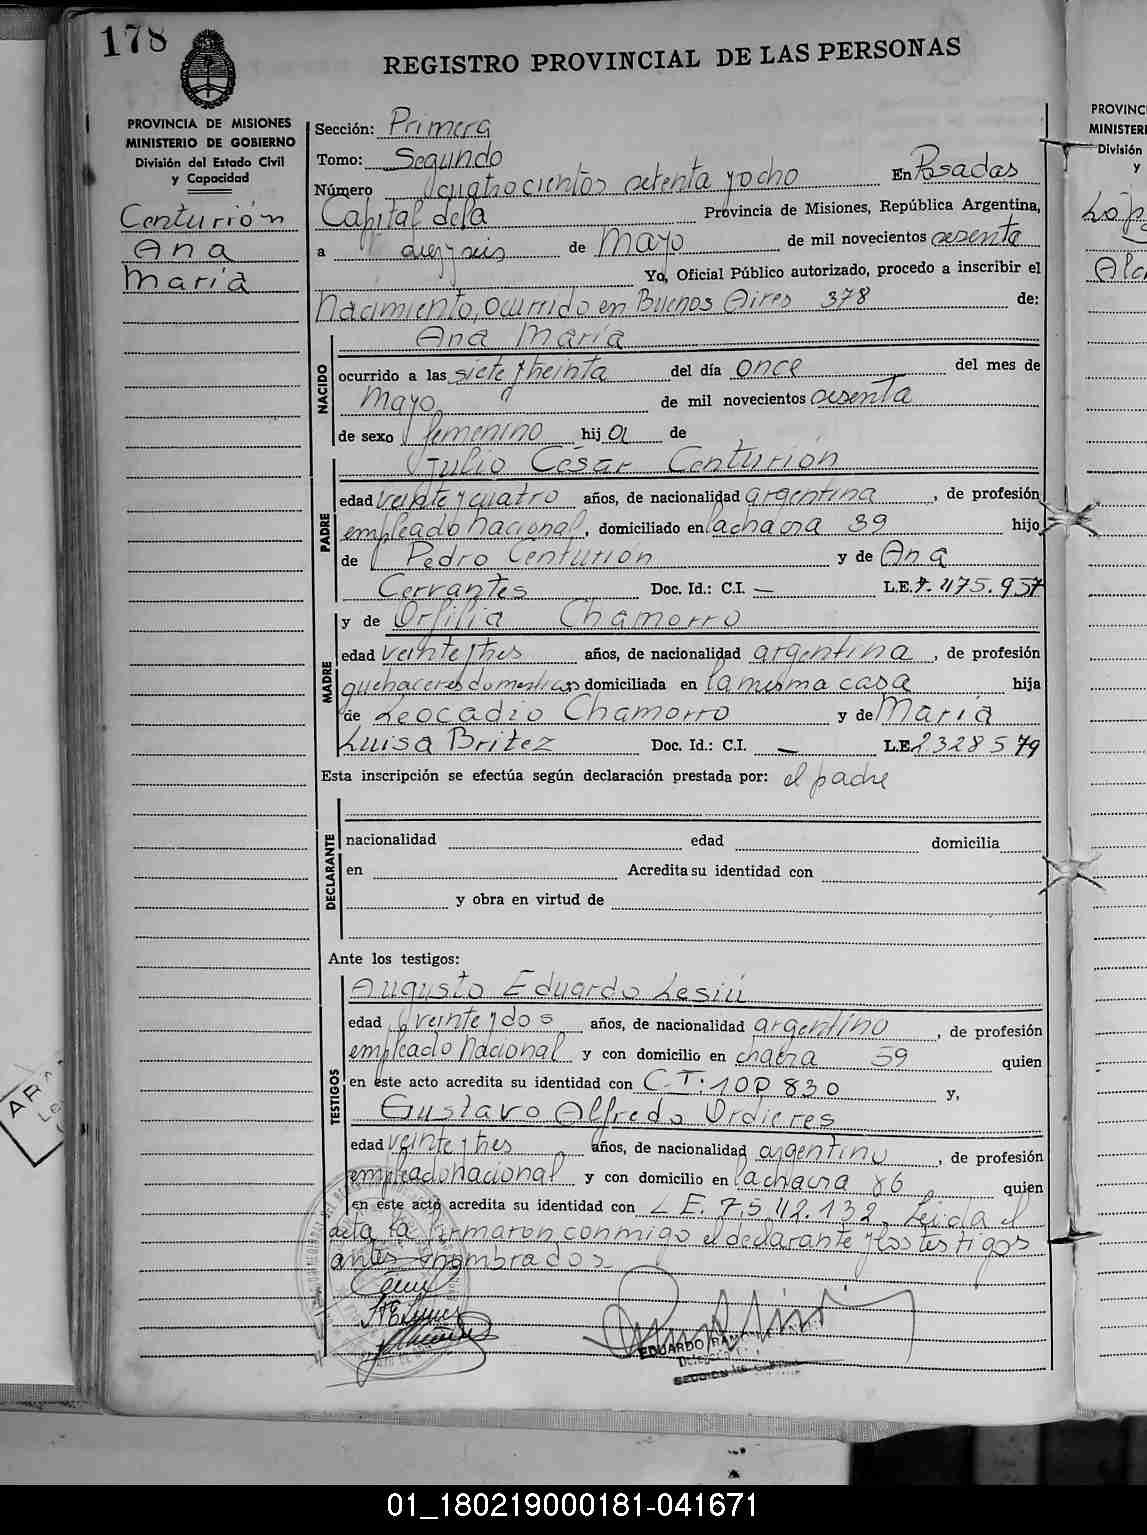 178
REGISTRO PROVINCIAL DE LAS PERSONAS
PROVINCIA DE MISIONES
MINISTERIO DE GOBIERNO
División del Estado Civil
y Capacidad
Centurión
Ana
María
Sección: Primera
Tomo: Segundo
Número cuatrocientos setenta y ocho En Posadas
Capital de la Provincia de Misiones, República Argentina,
a diez y seis de Mayo de mil novecientos sesenta
Yo, Oficial Público autorizado, procedo a inscribir el
Nacimiento, ocurrido en Buenos Aires 378 de:
NACIDO
Ana María
ocurrido a las siete y treinta del día once del mes de
Mayo de mil novecientos sesenta
de sexo femenino hija de
PADRE
Julio César Centurión
edad veinte y cuatro años, de nacionalidad argentina, de profesión
empleado nacional, domiciliado en la chacra 39 hijo
de Pedro Centurión y de Ana
Cervantes Doc. Id.: C.I. — L.E. 7.475.957
MADRE
y de Orfilia Chamorro
edad veinte y tres años, de nacionalidad argentina, de profesión
quehaceres domesticos domiciliada en la misma casa hija
de Leocadio Chamorro y de María
Luisa Britez Doc. Id.: C.I. — L.E. 2328579
Esta inscripción se efectúa según declaración prestada por: el padre
DECLARANTE
nacionalidad edad domicilia
en Acredita su identidad con
y obra en virtud de
Ante los testigos:
TESTIGOS
Augusto Eduardo Lesiú
edad veinte y dos años, de nacionalidad argentino, de profesión
empleado Nacional y con domicilio en chacra 59 quien
en este acto acredita su identidad con C.I: 100 830 y,
Gustavo Alfredo Ordieres
edad veinte y tres años, de nacionalidad argentino, de profesión
empleado nacional y con domicilio en la chacra 86 quien
en este acto acredita su identidad con L E. 7.542.132. Leida el
acta, la firmaron conmigo el declarante y los testigos
antes nombrados
EDUARDO
PROVINC
MINISTERI
División
y
01_180219000181-041671